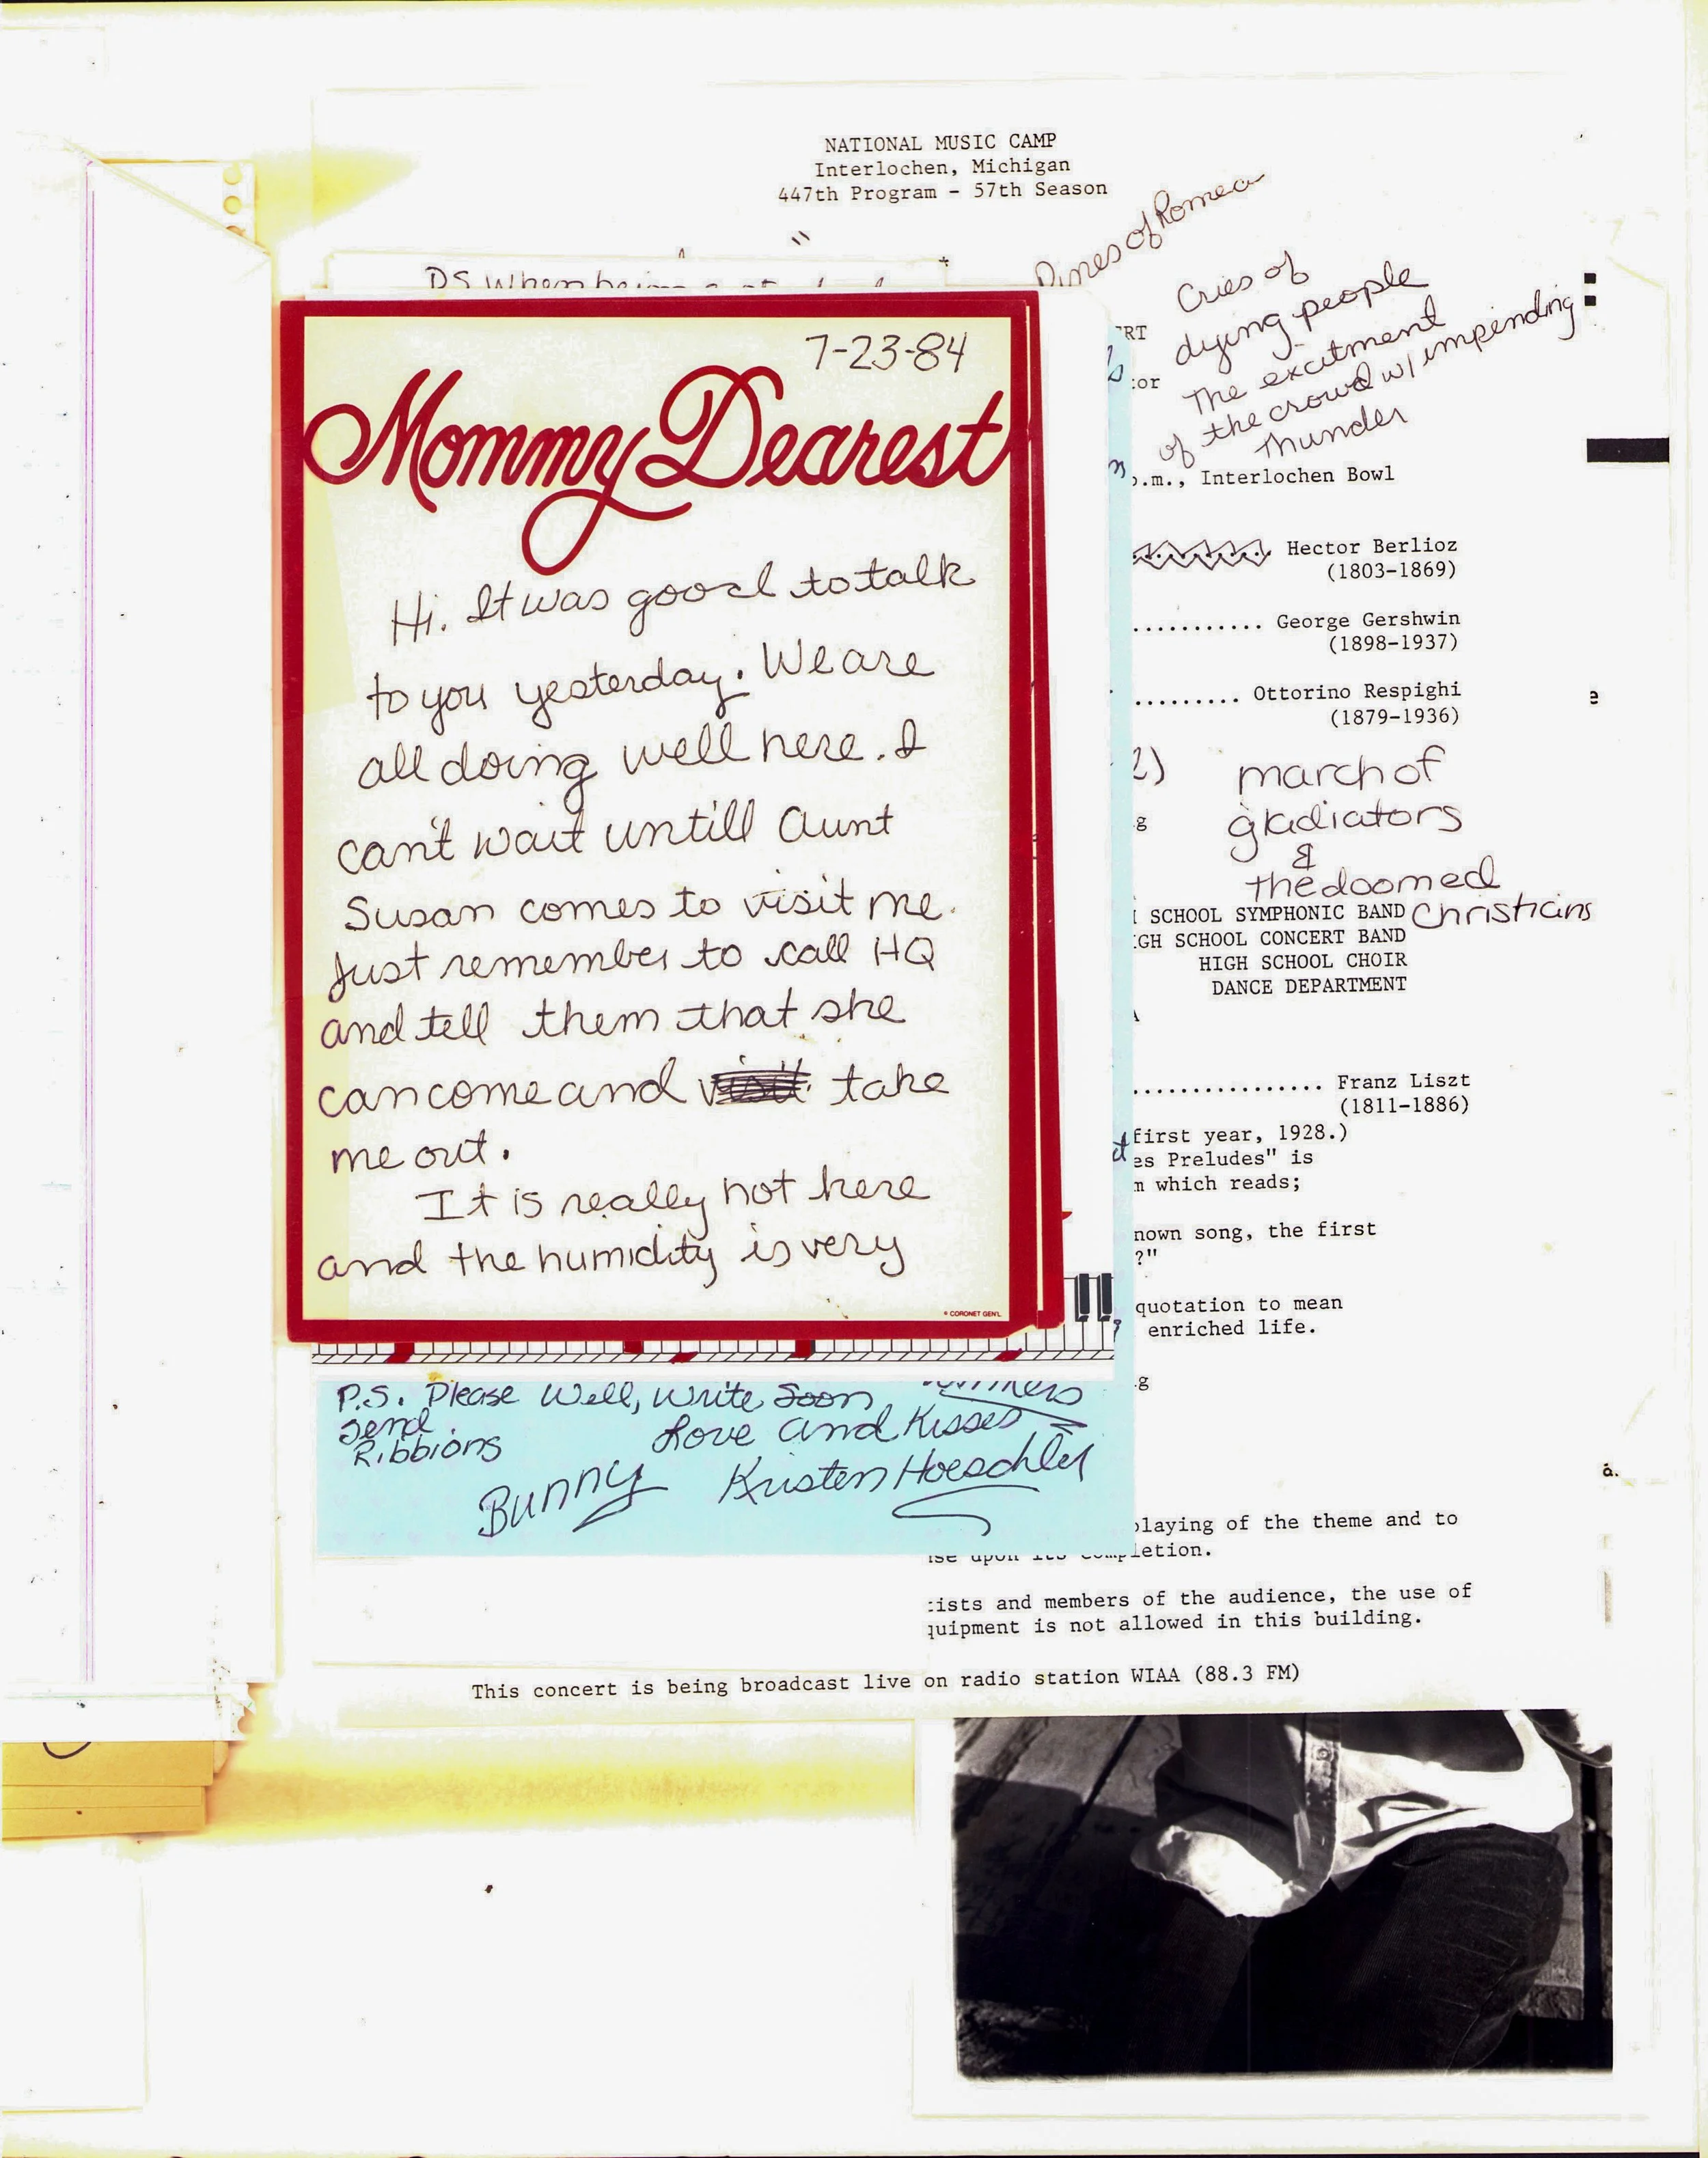 NATIONAL MUSIC CAMP
Interlochen, Michigan
447th Program - 57th Season
Pines of Romea
Cries of
dying people
The excitment
of the crowd w/ impending
Thunder
P.S. When
7-23-84
Mommy Dearest
Hi. It was good to talk
to you yesterday. We are
all doing well here. I
can't wait untill Aunt
Susan comes to visit me.
Just remember to call HQ
and tell them that she
can come and visit take
me out.
It is really hot here
and the humidity is very
© CORONET GEN'L
RT
tor
p.m., Interlochen Bowl
Hector Berlioz
(1803-1869)
........... George Gershwin
(1898-1937)
......... Ottorino Respighi
(1879-1936)
2)
march of
g
gladiators
&
the doomed
Christians
SCHOOL SYMPHONIC BAND
GH SCHOOL CONCERT BAND
HIGH SCHOOL CHOIR
DANCE DEPARTMENT
................ Franz Liszt
(1811-1886)
first year, 1928.)
es Preludes" is
m which reads;
nown song, the first
?"
quotation to mean
enriched life.
g
P.S. Please
Send
Ribbions
Well, Write Soon
Love and Kisses
Bunny
Kristen Hoeschler
playing of the theme and to
upon its completion.
ists and members of the audience, the use of
quipment is not allowed in this building.
This concert is being broadcast live on radio station WIAA (88.3 FM)